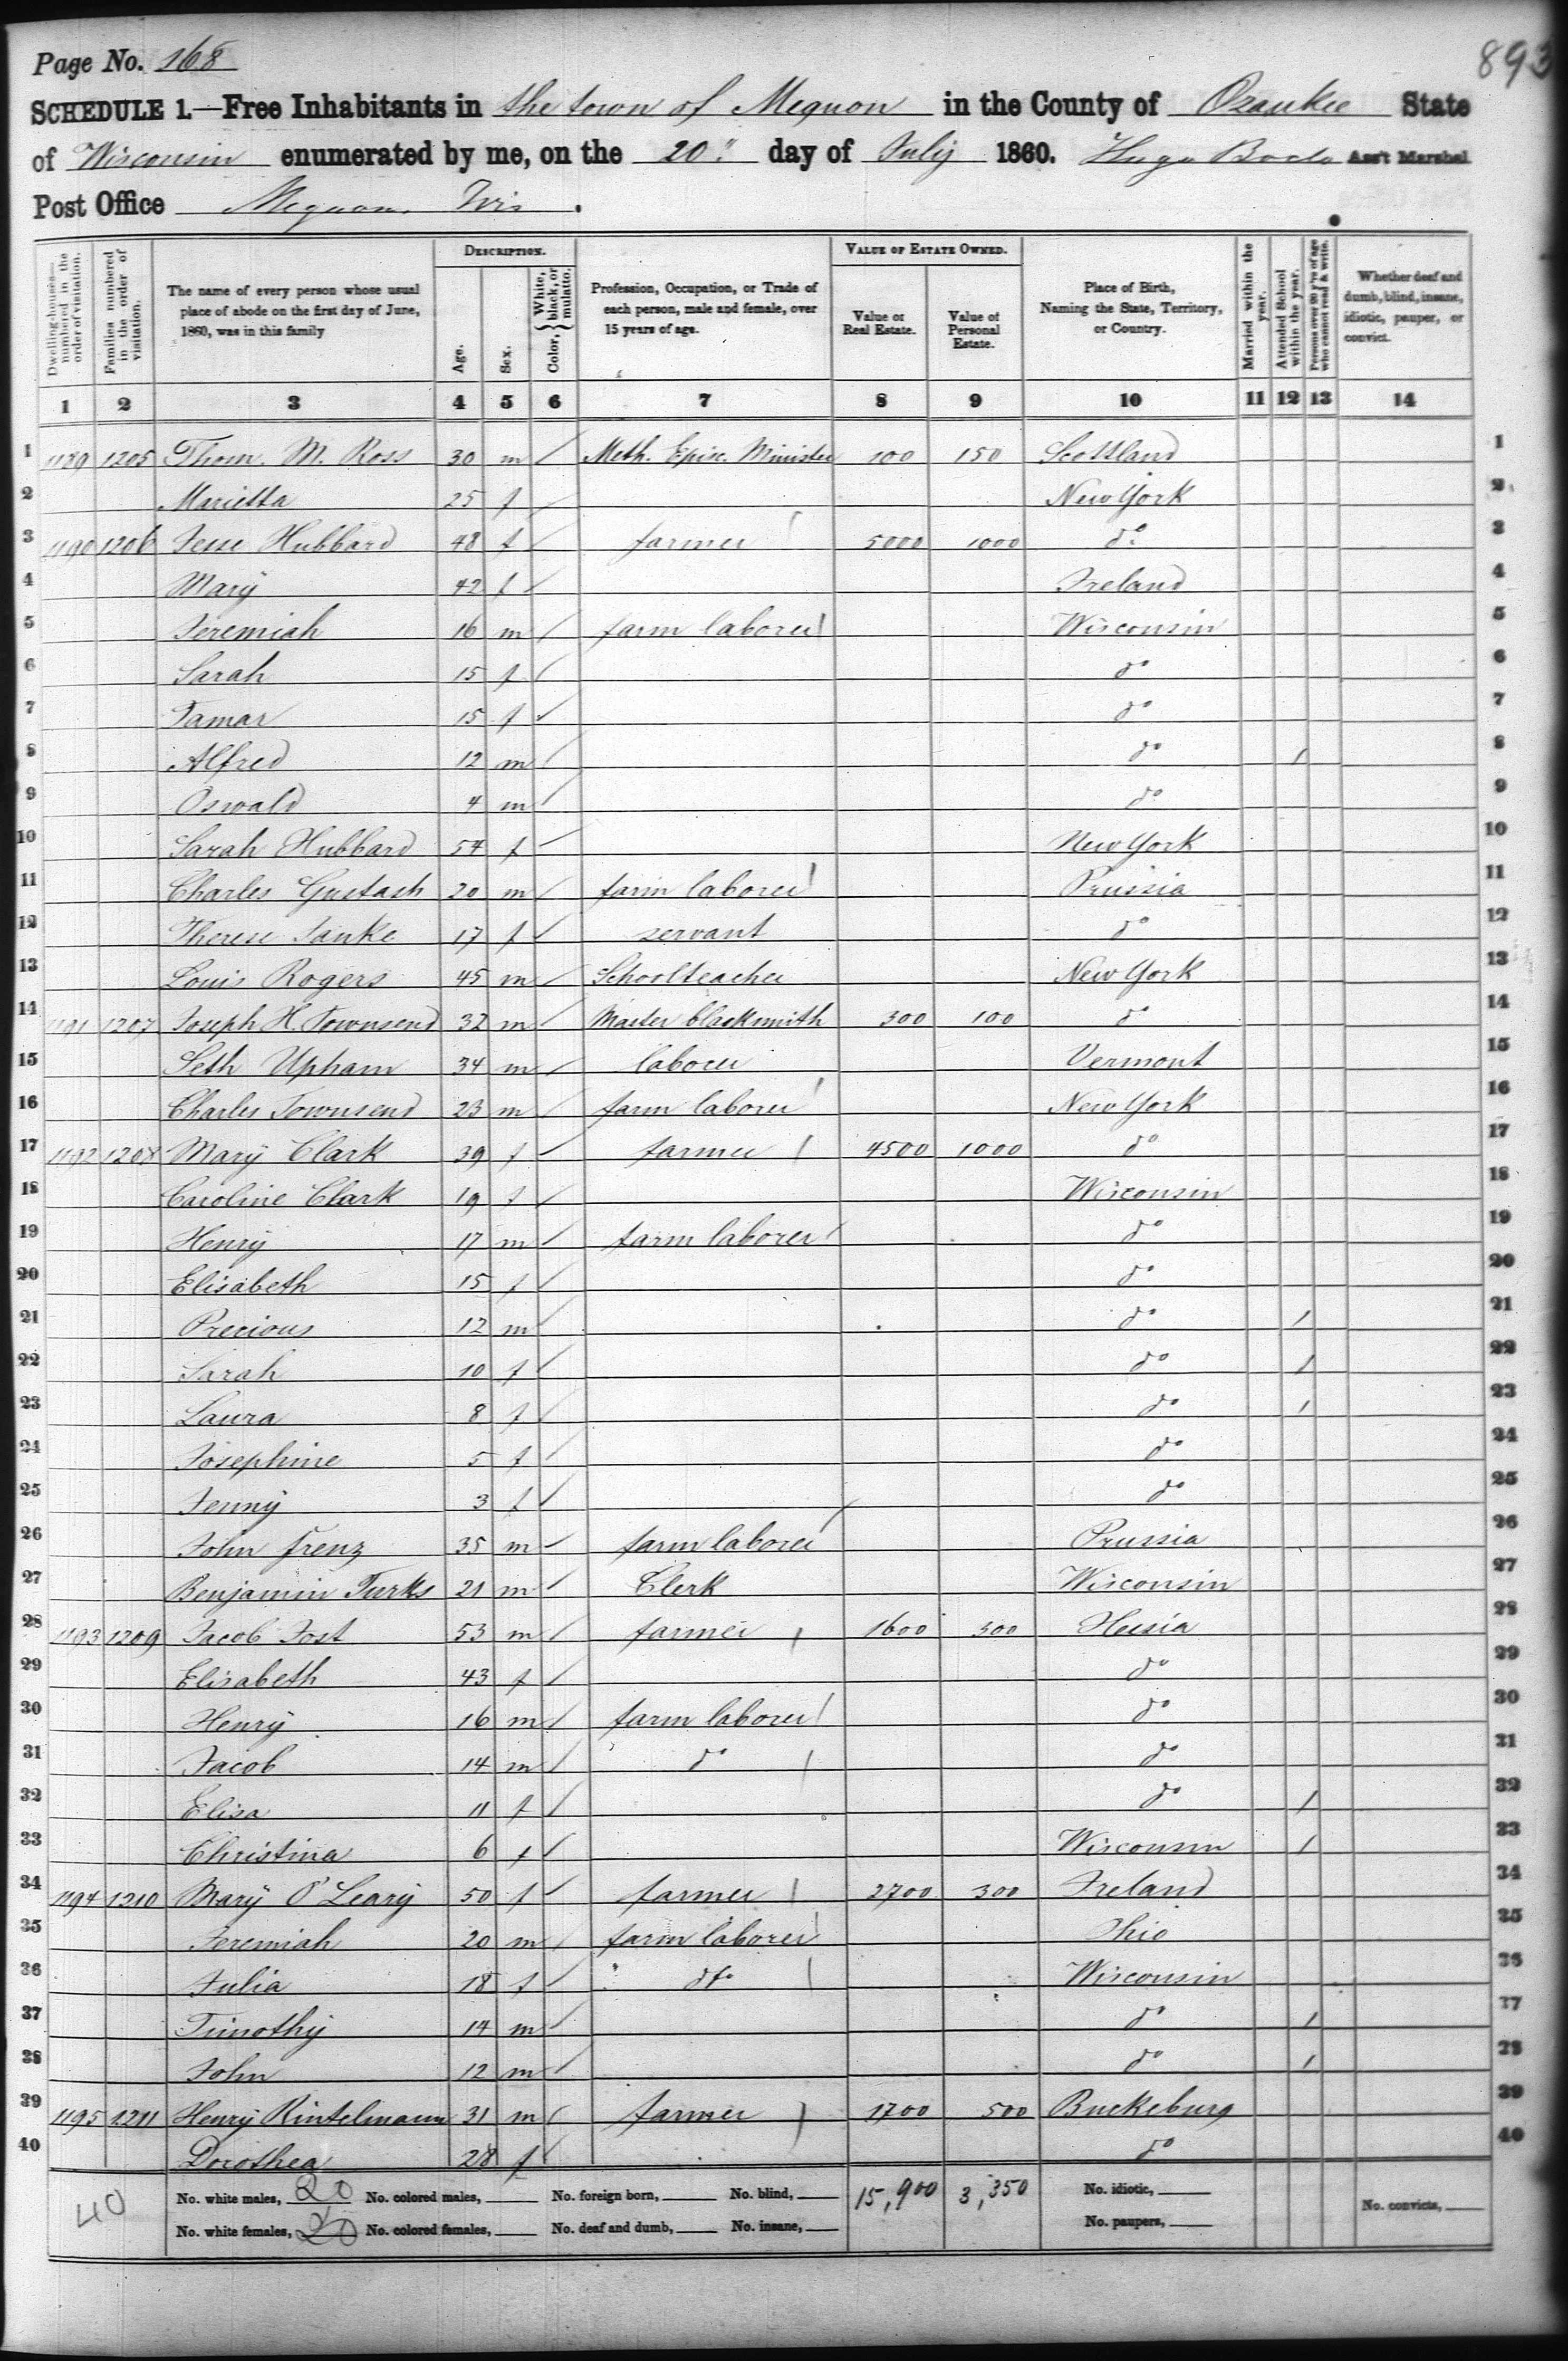 Page No. 168
893
SCHEDULE 1.—Free Inhabitants in the town of Mequon in the County of Ozaukee State
of Wisconsin enumerated by me, on the 20" day of July 1860. Hugo Ass't Marshal
Post Office Mequon, Wis.
Dwelling-houses—numbered in the order of visitation.
Families numbered in the order of visitation.
The name of every person whose usual place of abode on the first day of June, 1860, was in this family
DESCRIPTION.
Age.
Sex.
Color, { White, black, or mulatto.
Profession, Occupation, or Trade of each person, male and female, over 15 years of age.
VALUE OF ESTATE OWNED.
Value of Real Estate.
Value of Personal Estate.
Place of Birth, Naming the State, Territory, or Country.
Married within the year.
Attended School within the year.
Persons over 20 y'rs of age who cannot read & write.
Whether deaf and dumb, blind, insane, idiotic, pauper, or convict.
1 2 3 4 5 6 7 8 9 10 11 12 13 14
1 1189 1205 Thom. M. Ross 30 m / Meth. Episc. Minister 100 150 Scottland 1
2 Marietta 25 f / New York 2
3 1190 1206 Jesse Hubbard 48 f / farmer / 5000 1000 do 3
4 Mary 42 f / Ireland 4
5 Jeremiah 16 m / farm laborer / Wisconsin 5
6 Sarah 15 f / do 6
7 Tamar 15 f / do 7
8 Alfred 12 m / do / 8
9 Oswald 4 m / do 9
10 Sarah Hubbard 54 f / New York 10
11 Charles Gustash 20 m / farm laborer / Prussia 11
12 Therese Janke 17 f / servant do 12
13 Louis Rogers 45 m / Schoolteacher New York 13
14 1191 1207 Joseph H. Townsend 32 m / Master blacksmith 300 100 do 14
15 Seth Upham 34 m / laborer Vermont 15
16 Charles Townsend 23 m / farm laborer / New York 16
17 1192 1208 Mary Clark 39 f / farmer / 4500 1000 do 17
18 Caroline Clark 19 f / Wisconsin 18
19 Henry 17 m / farm laborer / do 19
20 Elisabeth 15 f / do 20
21 Precious 12 m / do / 21
22 Sarah 10 f / do / 22
23 Laura 8 f / do / 23
24 Josephine 5 f / do 24
25 Jenny 3 f / do 25
26 John Frenz 35 m / farm laborer / Prussia 26
27 Benjamin Turks 21 m / Clerk Wisconsin 27
28 1193 1209 Jacob Jost 53 m / farmer / 1600 300 Hessia 28
29 Elisabeth 43 f / do 29
30 Henry 16 m / farm laborer / do 30
31 Jacob 14 m / do / do 31
32 Elisa 11 f / do / 32
33 Christina 6 f / Wisconsin / 33
34 1194 1210 Mary O'Leary 50 f / farmer / 2700 300 Ireland 34
35 Jeremiah 20 m / farm laborer / Ohio 35
36 Julia 18 f / " do / Wisconsin 36
37 Timothy 14 m / do / 37
38 John 12 m / do / 38
39 1195 1211 Henry Rintelmann 31 m / farmer / 1700 500 Buckeburg 39
40 Dorothea 28 f / do 40
40
No. white males, 20 No. colored males, No. foreign born, No. blind, 15,900 3,350 No. idiotic,
No. white females, 20 No. colored females, No. deaf and dumb, No. insane, No. paupers, No. convicts,